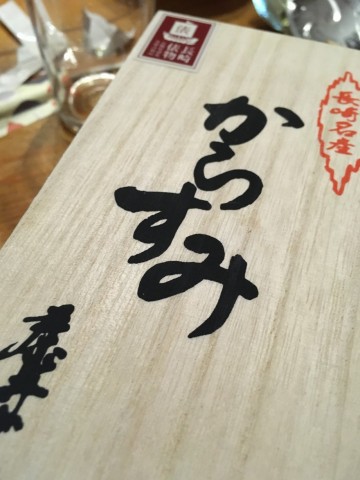 長崎
俵物
長崎名産
からすみ